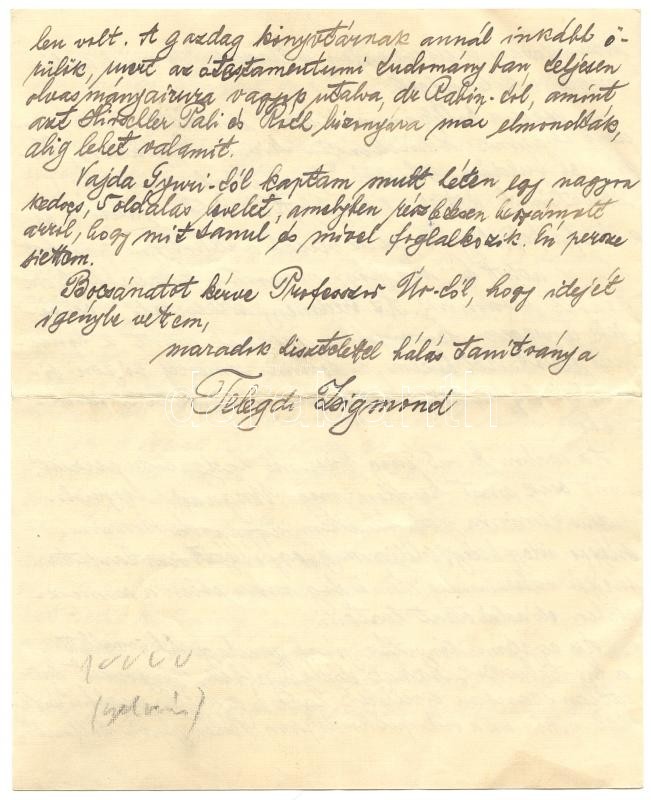 len volt. A gazdag könyvtárnak annál inkább ö-
rülök, mert az ótestamentumi tudományban teljesen
olvasmányaimra vagyok utalva, dr Rabin-tól, amint
azt Hirschler Pali és Róth bizonyára már elmondották,
alig lehet valamit.
Vajda Gyuri-tól kaptam mult héten egy nagyon
kedves, 5 oldalas levelet, amelyben részletesen beszámolt
arról, hogy mit tanul és mivel foglalkozik. Én persze
siettem.
Bocsánatot kérve Professzor Úr-tól, hogy idejét
igénybe vettem,
maradok tisztelettel hálás tanítványa
Telegdi Zsigmond
(nyelvész)